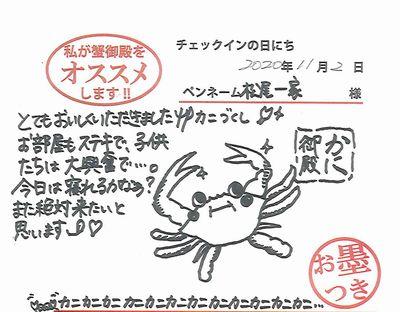 私が蟹御殿を
オススメ
します!!
チェックインの日にち
2020年11月2日
ペンネーム 松尾一家 様
とてもおいしくいただきました カニづくし
お部屋もステキで、子供
たちは大興奮で…。
今日は寝れるかなぁ?
また絶対来たいと
思います
かに
御殿
お墨
つき
カニカニカニ カニカニカニ カニカニカニカニカニ…